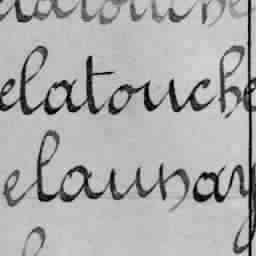 elatouche
elatouche
elaunay